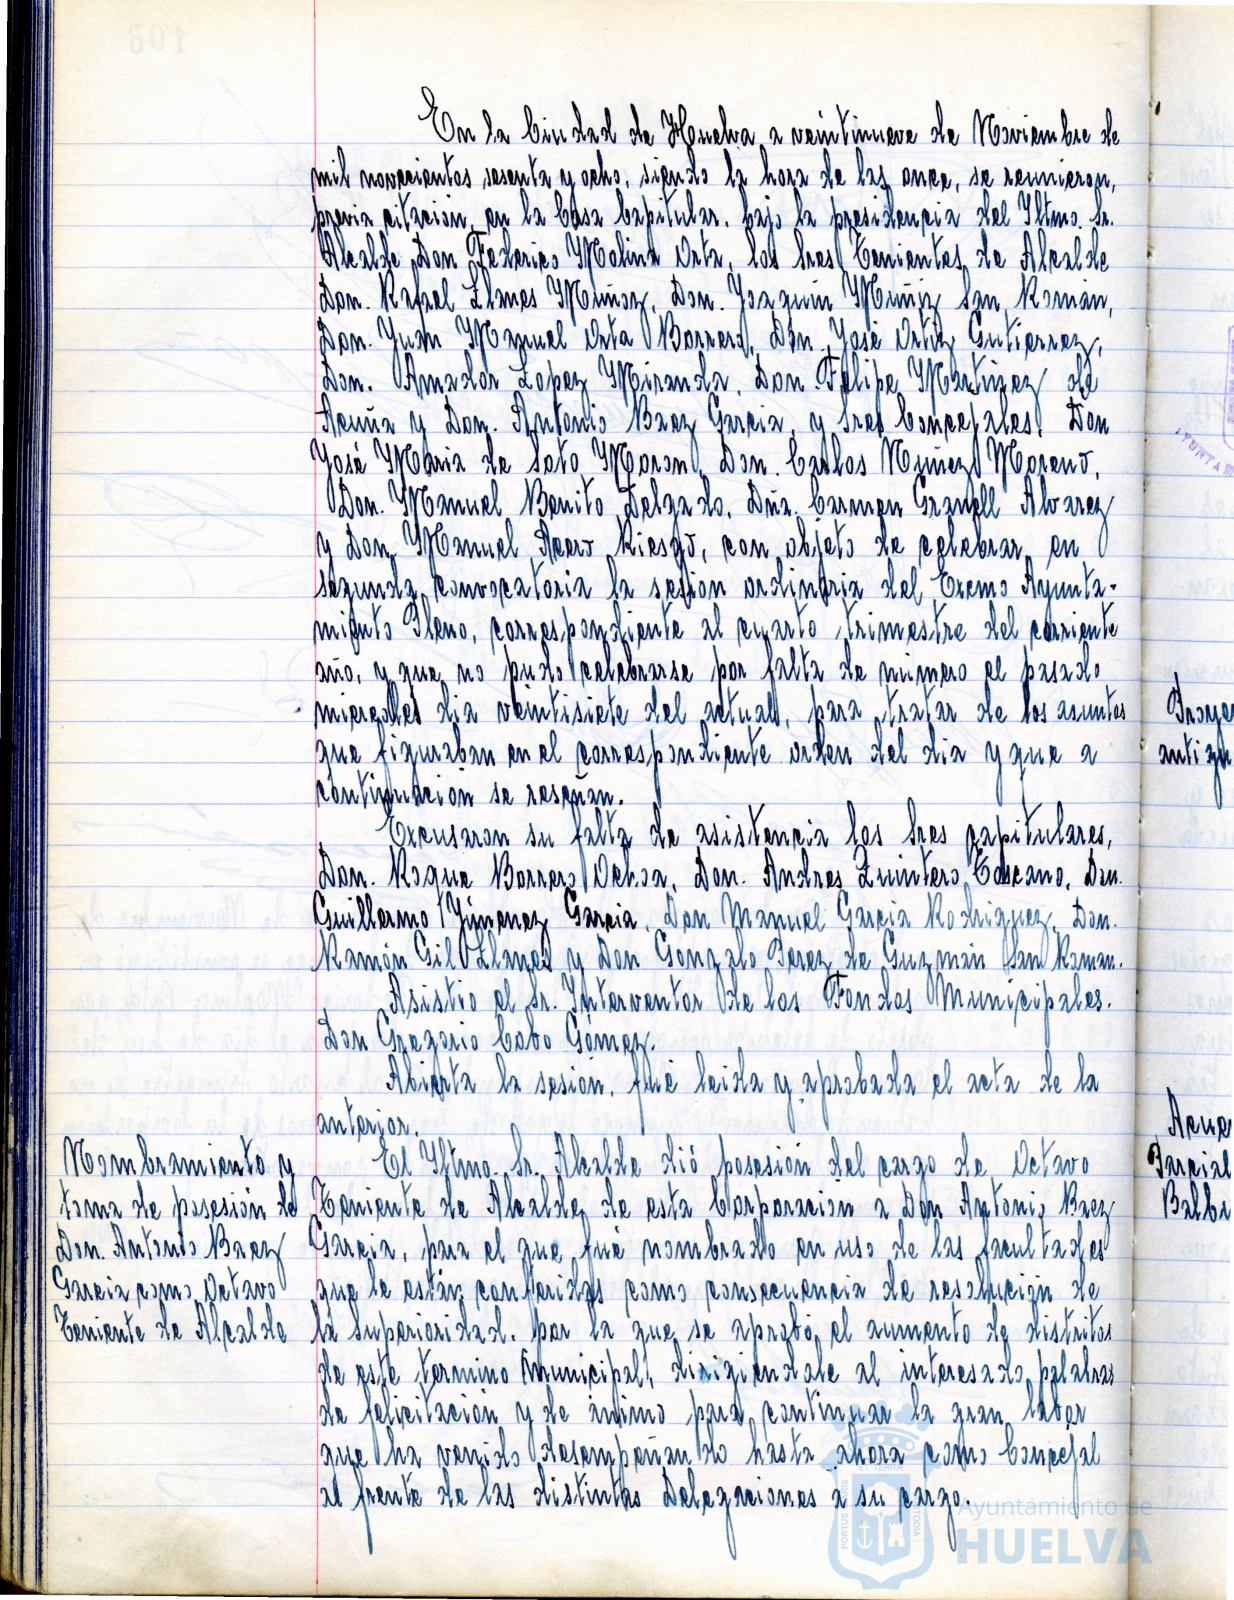 En la Ciudad de Huelva a veintinueve de Noviembre de
mil novecientos sesenta y ocho, siendo la hora de las once, se reunieron,
previa citación, en la Casa Capitular, bajo la presidencia del Iltmo. Sr.
Alcalde Don Federico Molina Orta, los Sres. Tenientes de Alcalde
Don. Rafael Llanes Muñoz, Don. Joaquín Muñiz San Román,
Don. Juan Manuel Orta Borrero, Don. José Ortiz Gutierrez,
Don. Amador Lopez Miranda, Don. Felipe Martinez de
Acuña y Don. Antonio Baez Garcia, y Sres. Concejales, Don
José Maria de Soto Moron, Don. Carlos Nuñez Moreno,
Don. Manuel Benito Delgado, Dña. Carmen Granell Alvarez
y Don. Manuel Acero Riesgo, con objeto de celebrar en
segunda convocatoria la sesion ordinaria del Excmo Ayunta-
miento Pleno, correspondiente al cuarto trimestre del corriente
año, y que no pudo celebrarse por falta de número el pasado
miercoles dia veintisiete del actual, para tratar de los asuntos
que figuraban en el correspondiente orden del dia y que a
continuación se reseñan.
Excusaron su falta de asistencia los Sres capitulares,
Don. Roque Barrero Ochoa, Don. Andres Quintero Toscano, Don.
Guillermo Jimenez Garcia, Don Manuel Garcia Rodriguez, Don.
Ramón Gil Llanes y Don Gonzalo Perez de Guzmán San Roman.
Asistio el Sr. Interventor de los Fondos Municipales.
Don Gregorio Cabo Gómez.
Abierta la sesion, fué leida y aprobada el acta de la
anterior.
Nombramiento y
toma de posesión de
Don. Antonio Baez
Garcia como Octavo
Teniente de Alcalde
El Iltmo. Sr. Alcalde dió posesión del cargo de Octavo
Teniente de Alcalde de esta Corporación a Don Antonio Baez
Garcia, para el que fué nombrado en uso de las facultades
que le están conferidas como consecuencia de resolución de
la Superioridad, por la que se aprobó el aumento de distritos
de este termino Municipal, dirigiendole al interesado palabras
de felicitación y de ánimo para continuar la gran labor
que ha venido desempeñando hasta ahora como Concejal
al frente de las distintas Delegaciones a su cargo.
Proye
antigu
Acue
Parcial
Balbu
108
Ayuntamiento de
HUELVA